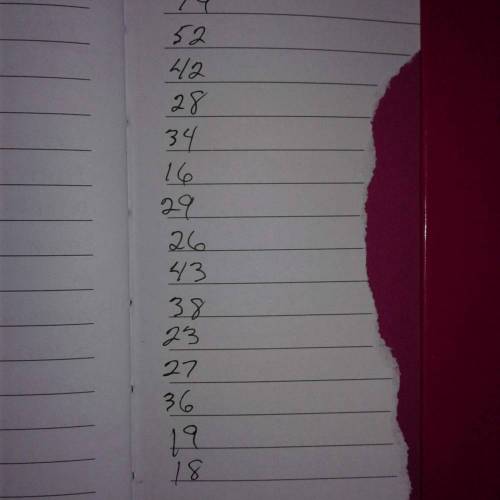 52
42
28
34
16
29
26
43
38
23
27
36
19
18